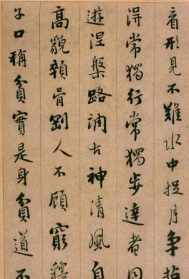 看形見不難水中捉月爭
得常獨行常獨步達者同
遊涅槃路調古神清風自
高貌顇骨剛人不顧窮釋
子口稱貧實是身貧道不